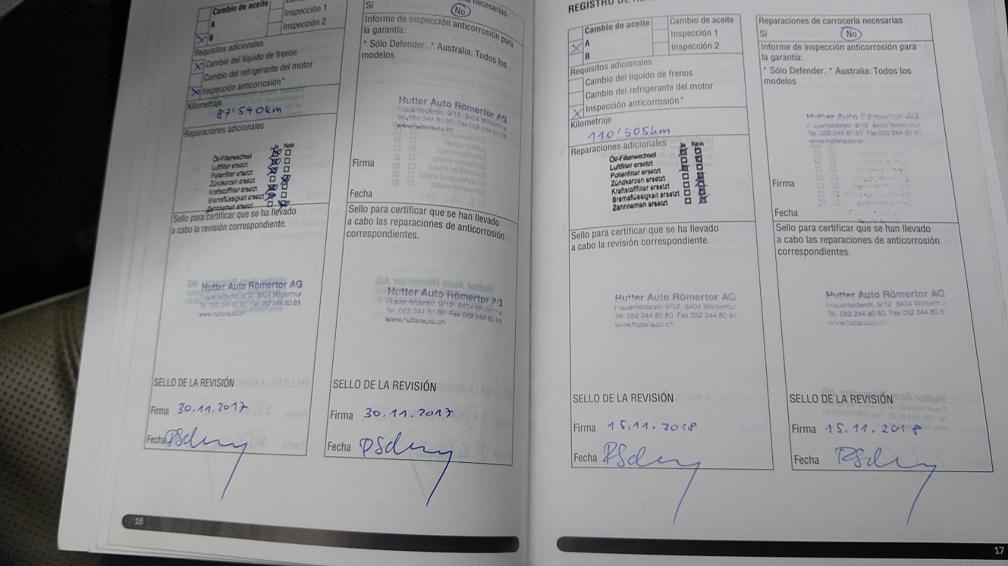 Cambio de aceite
Inspección 1
A
Inspección 2
B
Requisitos adicionales
Cambio del líquido de frenos
Cambio del refrigerante del motor
Inspección anticorrosión*
Kilometraje
87'540km
Reparaciones adicionales
Ja Nein
Öl-Filterwechsel
Luftfilter ersetzt
Pollenfilter ersetzt
Zündkerzen ersetzt
Kraftstofffilter ersetzt
Bremsflüssigkeit ersetzt
Zahnriemen ersetzt
Sello para certificar que se ha llevado
a cabo la revisión correspondiente.
Hutter Auto Römertor AG
Frauenfelderstr. 9/12 8404 Winterthur
Tel. 052 244 80 80 Fax 052 244 80 81
www.hutterauto.ch
SELLO DE LA REVISIÓN
Firma 30.11.2017
Fecha
16
necesarias
Sí
No
Informe de inspección anticorrosión para
la garantía:
* Sólo Defender. * Australia: Todos los
modelos
Hutter Auto Römertor AG
Frauenfelderstr. 9/12 8404 Winterthur
Tel. 052 244 80 80 Fax 052 244 80 81
www.hutterauto.ch
Firma
Fecha
Sello para certificar que se han llevado
a cabo las reparaciones de anticorrosión
correspondientes.
Hutter Auto Römertor AG
Frauenfelderstr. 9/12 8404 Winterthur
Tel. 052 244 80 80 Fax 052 244 80 81
www.hutterauto.ch
SELLO DE LA REVISIÓN
Firma 30.11.2017
Fecha
REGISTRO DE
Cambio de aceite
Cambio de aceite
A
Inspección 1
B
Inspección 2
Requisitos adicionales
Cambio del líquido de frenos
Cambio del refrigerante del motor
Inspección anticorrosión*
Kilometraje
110'505km
Reparaciones adicionales
Ja Nein
Öl-Filterwechsel
Luftfilter ersetzt
Pollenfilter ersetzt
Zündkerzen ersetzt
Kraftstofffilter ersetzt
Bremsflüssigkeit ersetzt
Zahnriemen ersetzt
Sello para certificar que se ha llevado
a cabo la revisión correspondiente.
Hutter Auto Römertor AG
Frauenfelderstr. 9/12 8404 Winterthur
Tel. 052 244 80 80 Fax 052 244 80 81
www.hutterauto.ch
SELLO DE LA REVISIÓN
Firma 15.11.2018
Fecha
Reparaciones de carrocería necesarias
Sí
No
Informe de inspección anticorrosión para
la garantía:
* Sólo Defender. * Australia: Todos los
modelos
Hutter Auto Römertor AG
Frauenfelderstr. 9/12 8404 Winterthur
Tel. 052 244 80 80 Fax 052 244 80 81
www.hutterauto.ch
Firma
Fecha
Sello para certificar que se han llevado
a cabo las reparaciones de anticorrosión
correspondientes.
Hutter Auto Römertor AG
Frauenfelderstr. 9/12 8404 Winterthur
Tel. 052 244 80 80 Fax 052 244 80 81
www.hutterauto.ch
SELLO DE LA REVISIÓN
Firma 15.11.2018
Fecha
17